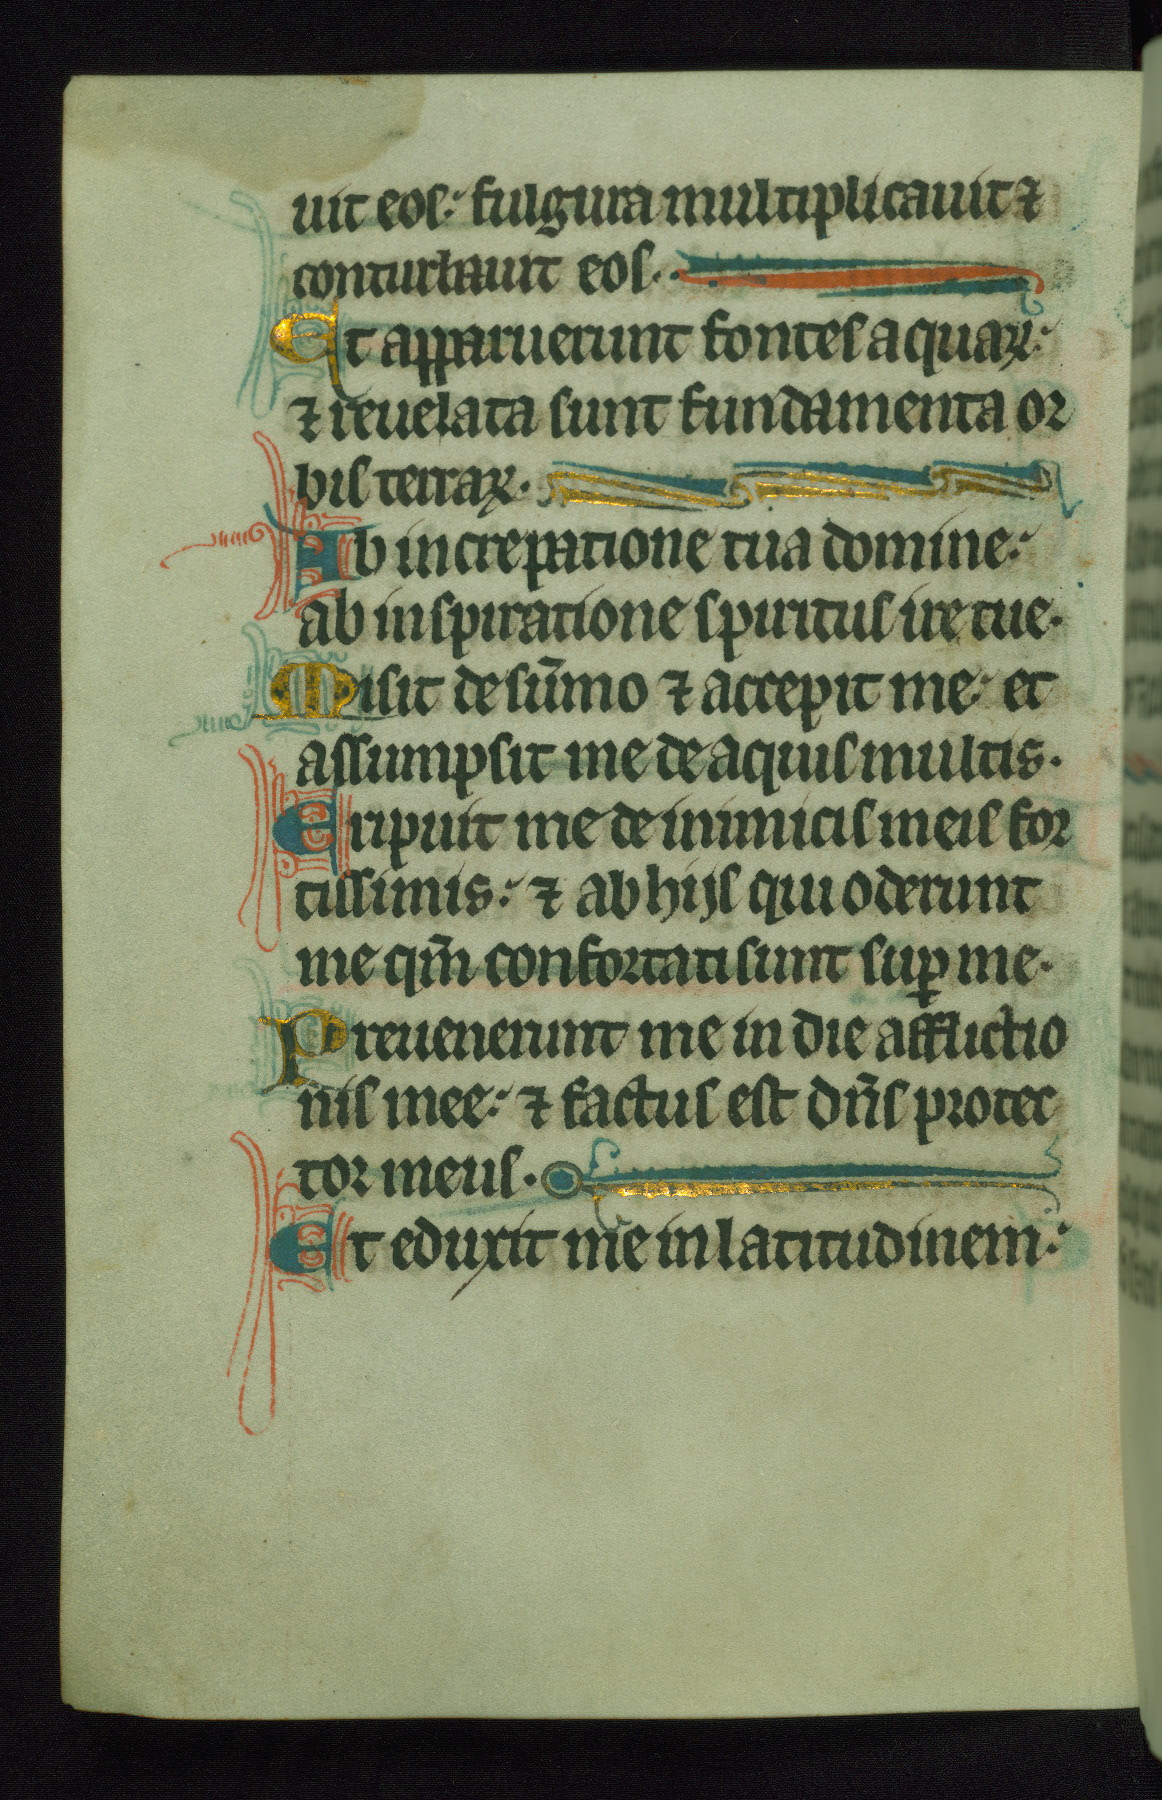 uit eos: fulgura multiplicauit ⁊
conturbauit eos.
Et apparuerunt fontes aquaꝝ:
⁊ reuelata sunt fundamenta or
bis terraꝝ.
Ab increpatione tua domine:
ab inspiratione spiritus ire tue.
Misit de sūmo ⁊ accepit me: et
assumpsit me de aquis multis.
Eripuit me de inimicis meis for
tissimis: ⁊ ab hijs qui oderunt
me qm̄ confortati sunt suꝑ me.
Preuenerunt me in die afflictio
nis mee: ⁊ factus est dn̄s protec
tor meus.
Et eduxit me in latitudinem: